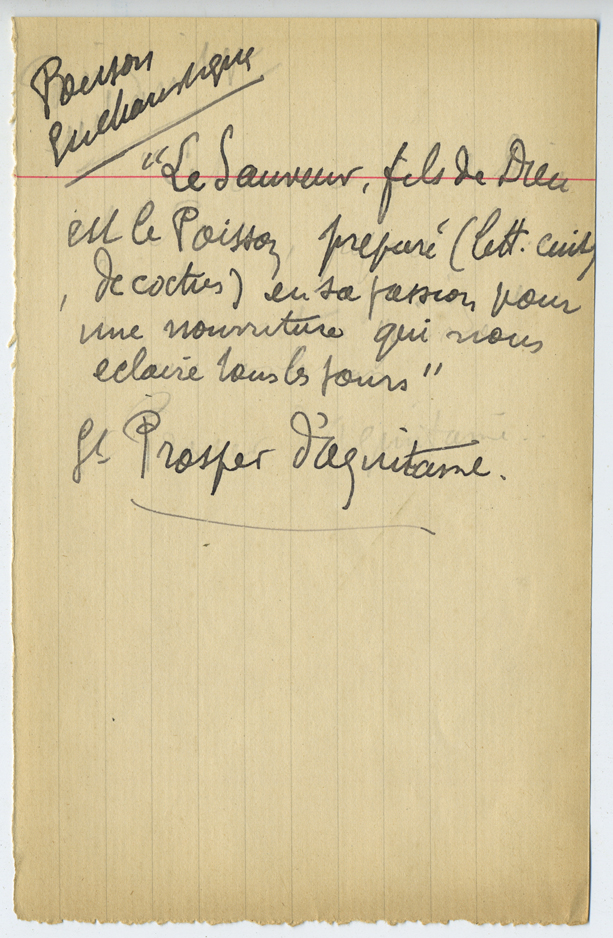 Poisson
Eucharistique
"Le Sauveur, fils de Dieu
est le Poisson preparé (litt. cuit,
, decoctus) en sa passion pour
une nourriture qui nous
eclaire tous les jours"
St Prosper d'Aquitaine.